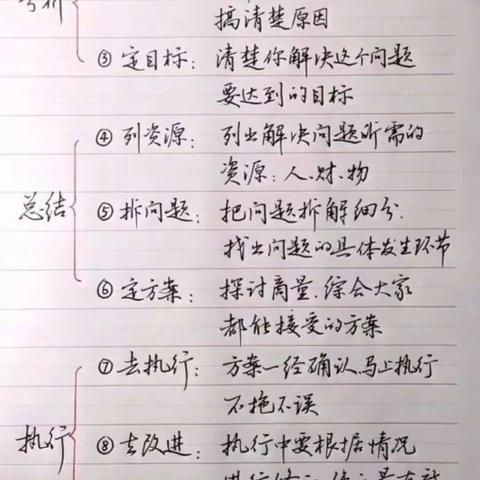 分析
搞清楚原因
③ 定目标: 清楚你解决这个问题
要达到的目标
④ 列资源: 列出解决问题所需的
资源:人、财、物
总结
⑤ 拆问题: 把问题拆解细分.
找出问题的具体发生环节
⑥ 定方案: 探讨商量.综合大家
都能接受的方案
⑦ 去执行: 方案一经确认.马上执行
不拖不误
执行
⑧ 去改进: 执行中要根据情况